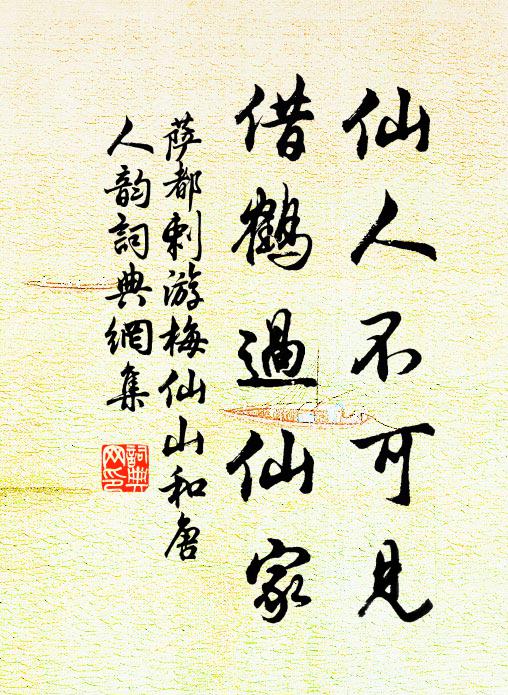 仙人不可見
借鶴過仙家
薩都剌游梅仙山和唐
人韵詞典網集
詞典
网印